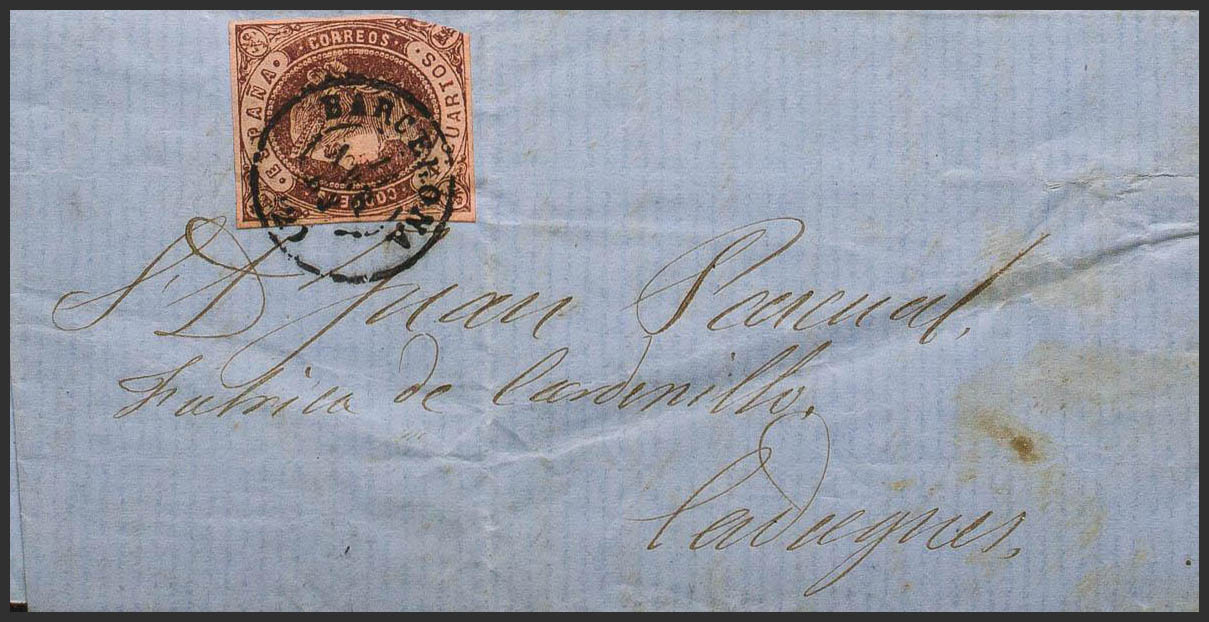 CORREOS
ESPAÑA
CUARTOS
BARCELONA
S. D. Juan Pascual,
Fabrica de Cardenillo,
Cadaques,